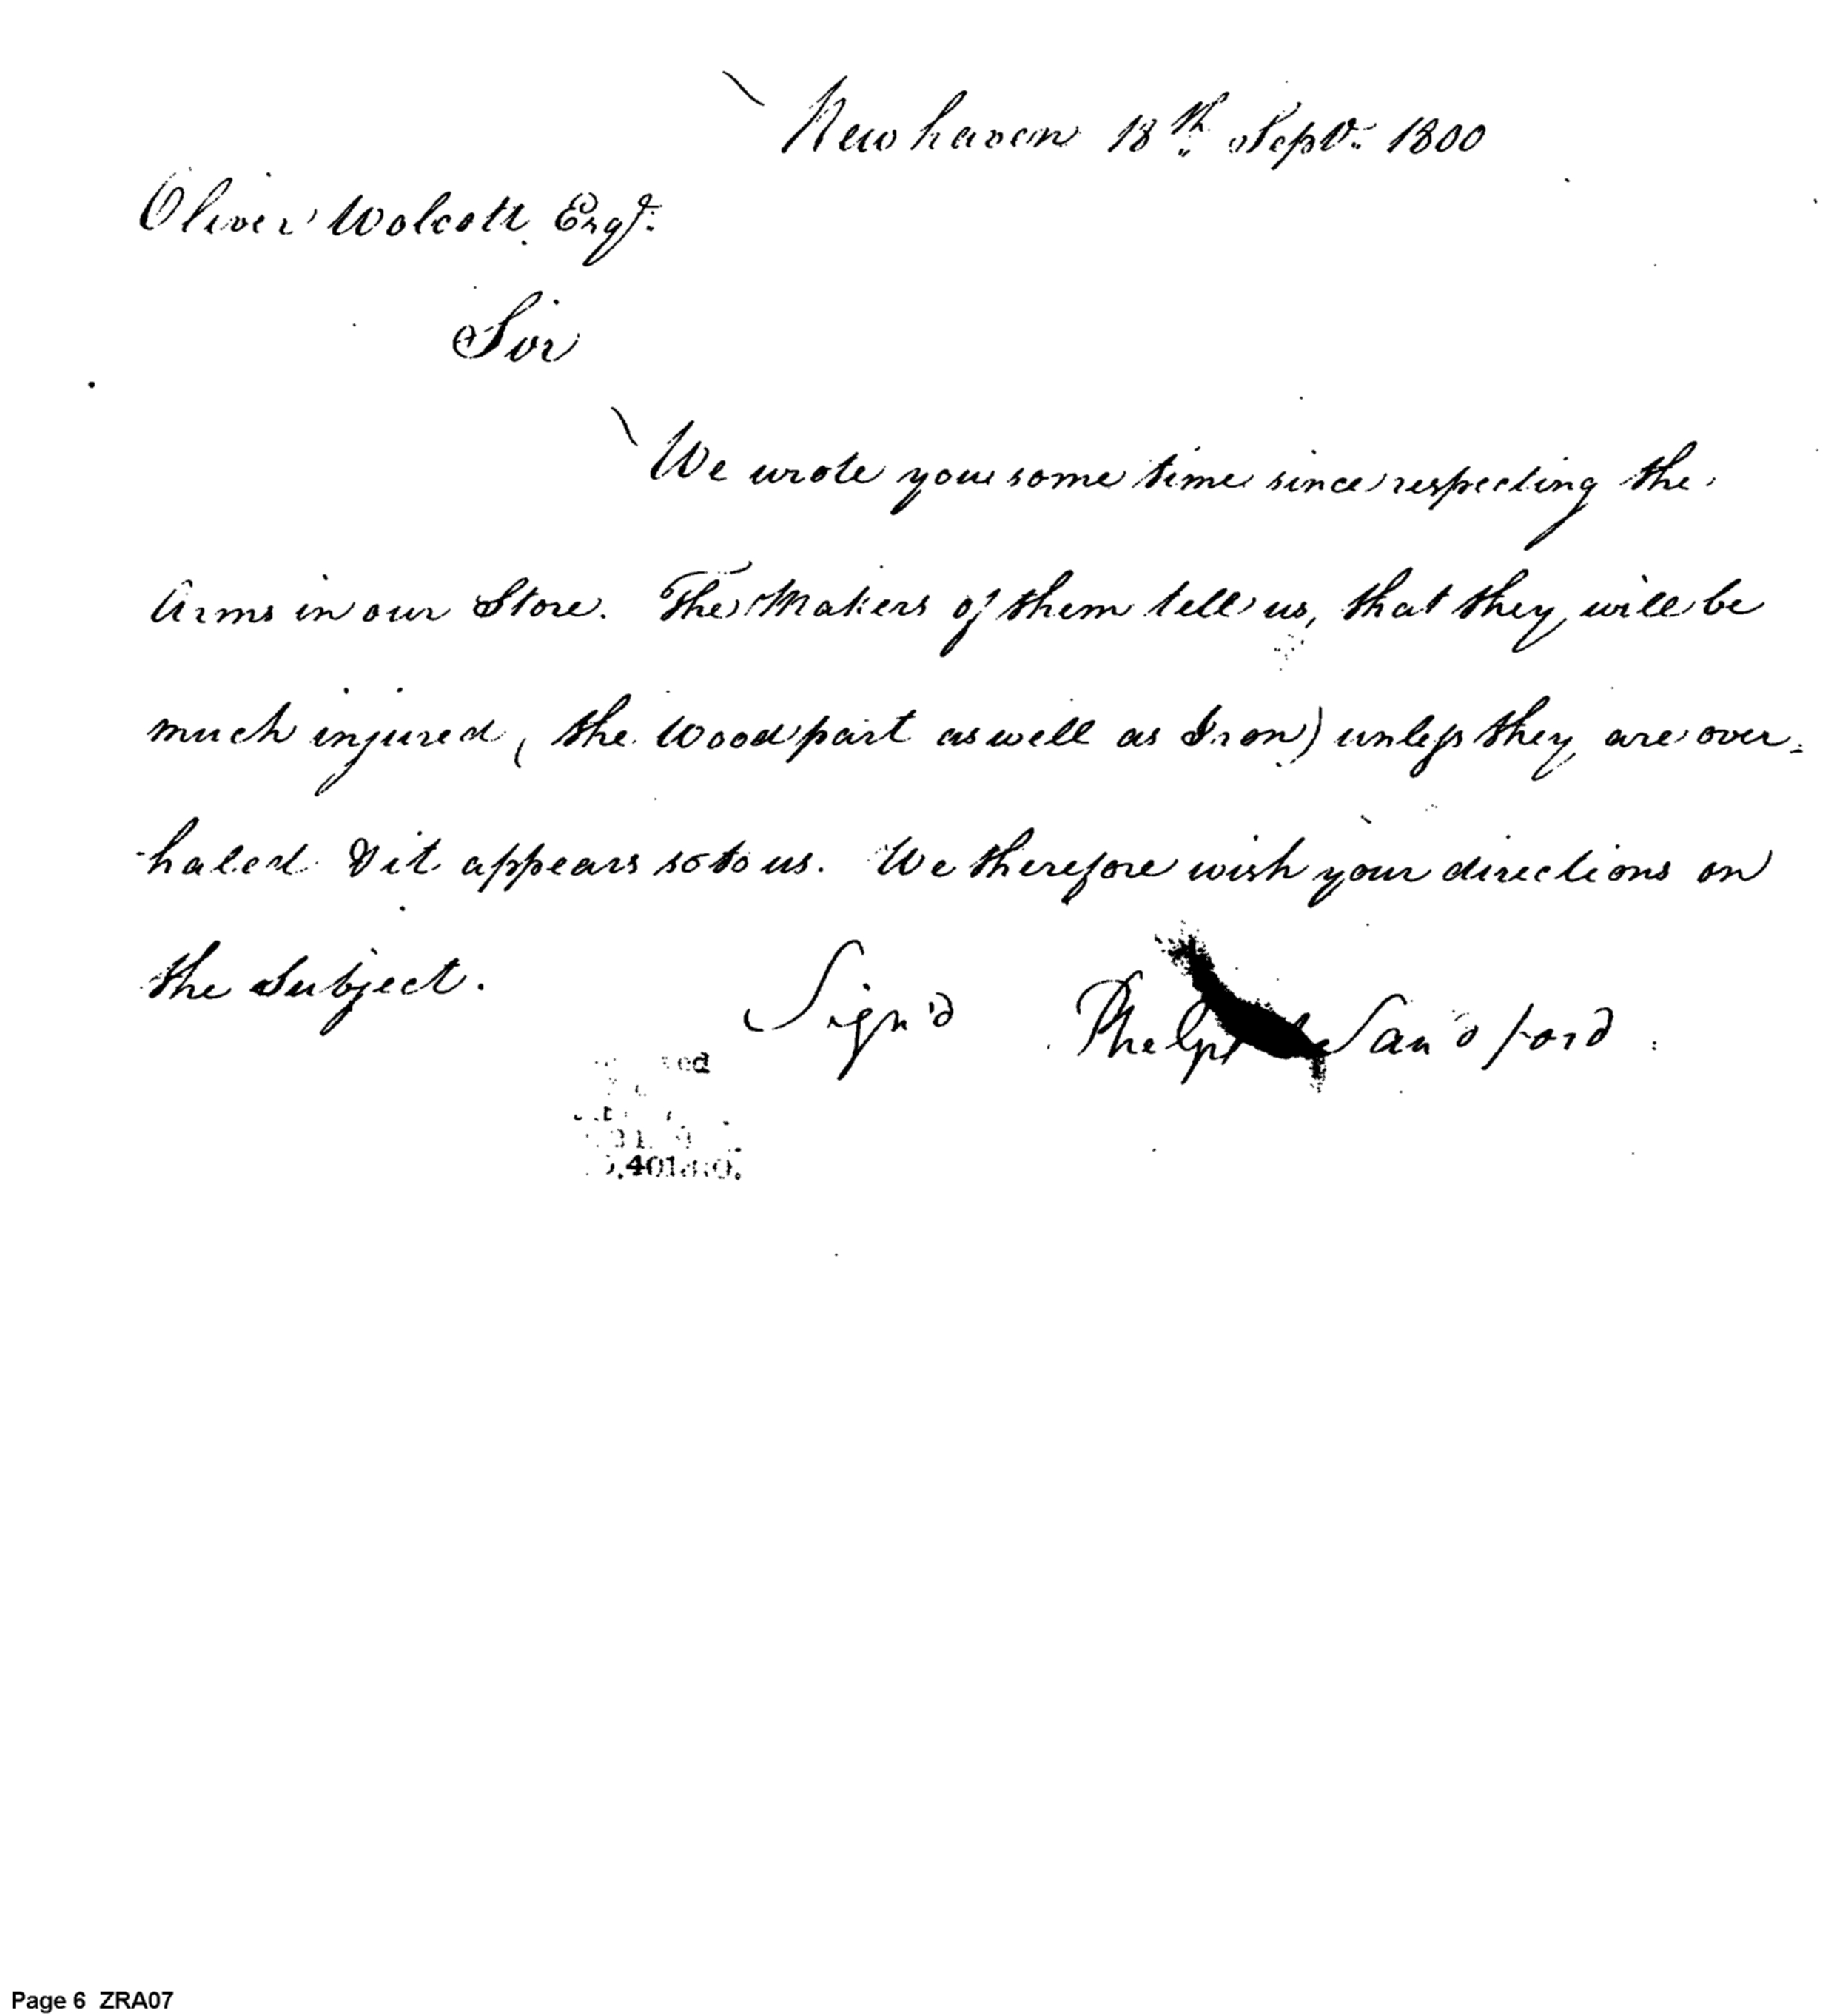 New haven 18th Sept. 1800
Oliver Wolcott Esqr.
Sir
We wrote you some time since respecting the
Arms in our Store. The Makers of them tell us, that they will be
much injured, (the Wood part as well as Iron) unless they are over-
-haled & it appears so to us. We therefore wish your directions on
the Subject.
Sign'd Phelps Sandford
401
Page 6 ZRA07